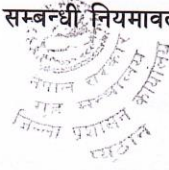 सम्बन्धी नियमाव
नेपाल सरकार
गृह मन्त्रालय
जिल्ला प्रशासन कार्यालय
प्यूठान